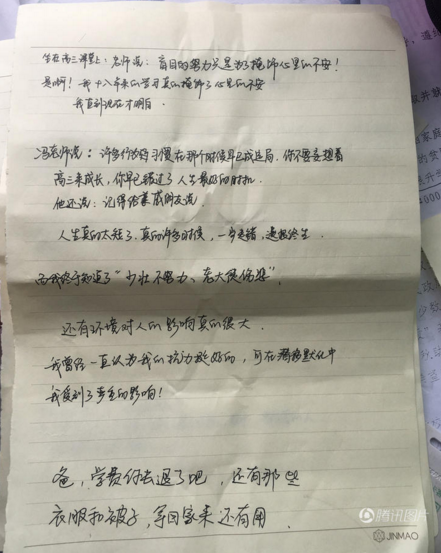 坐在高三课堂上，老师说：盲目的努力只是为了掩饰心里的不安！
是啊！我十八年来的学习真的掩饰了心里的不安
我直到现在才明白
冯老师说：许多行为的习惯在那个时候早已成定局。你不要妄想着
高三来成长，你早已错过了人生最好的时机。
他还说：记得给 朋友说
人生真的太短了，真的许多时候，一步走错，遗憾终生。
而我终于知道了“少壮不努力、老大徒伤悲”，
还有环境对人的影响真的很大。
我曾经一直认为我的抗力挺好的，可在潜移默化中
我受到了 的影响！
爸，学费你去退了吧，还有那些
衣服和被子，拿回家来还有用。
腾讯图片
JINMAO